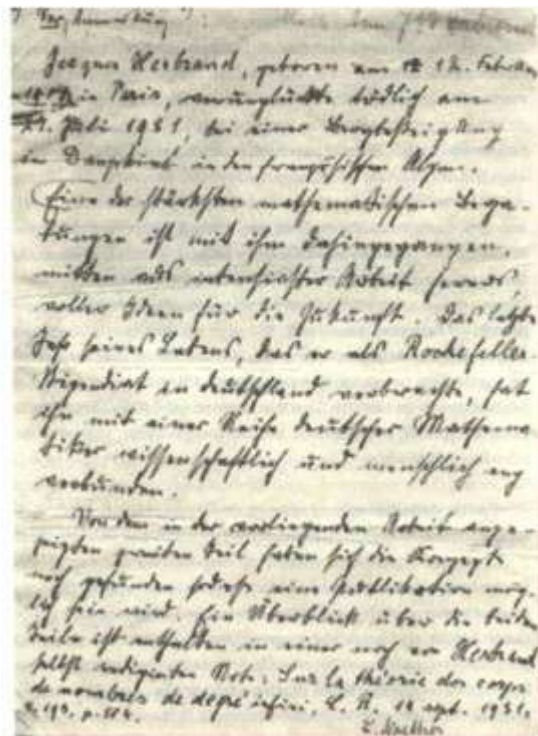 Jacques Herbrand, geboren am 12. Februar
in Paris, verunglückte tödlich am
Juli 1931, bei einer Bergbesteigung
in den französischen Alpen.
Eine der stärksten mathematischen Bega-
bungen ist mit ihm dahingegangen,
mitten aus intensivster Arbeit heraus,
voller Ideen für die Zukunft. Das letzte
Jahr seines Lebens, das er als Rockefeller-
Stipendiat in Deutschland verbrachte, hat
ihn mit einer Reihe deutscher Mathema
tiker wissenschaftlich und menschlich eng
verbunden.
Von dem in der vorliegenden Arbeit ange-
zeigten zweiten Teil haben sich die Konzepte
noch gefunden sodass eine Publikation mög-
lich sein wird. Ein Überblick über die beiden
Teile ist enthalten in einer noch von Herbrand
selbst redigierten Note: Sur la théorie des corps
de nombres de degré infini, C. R. sept. 1931,